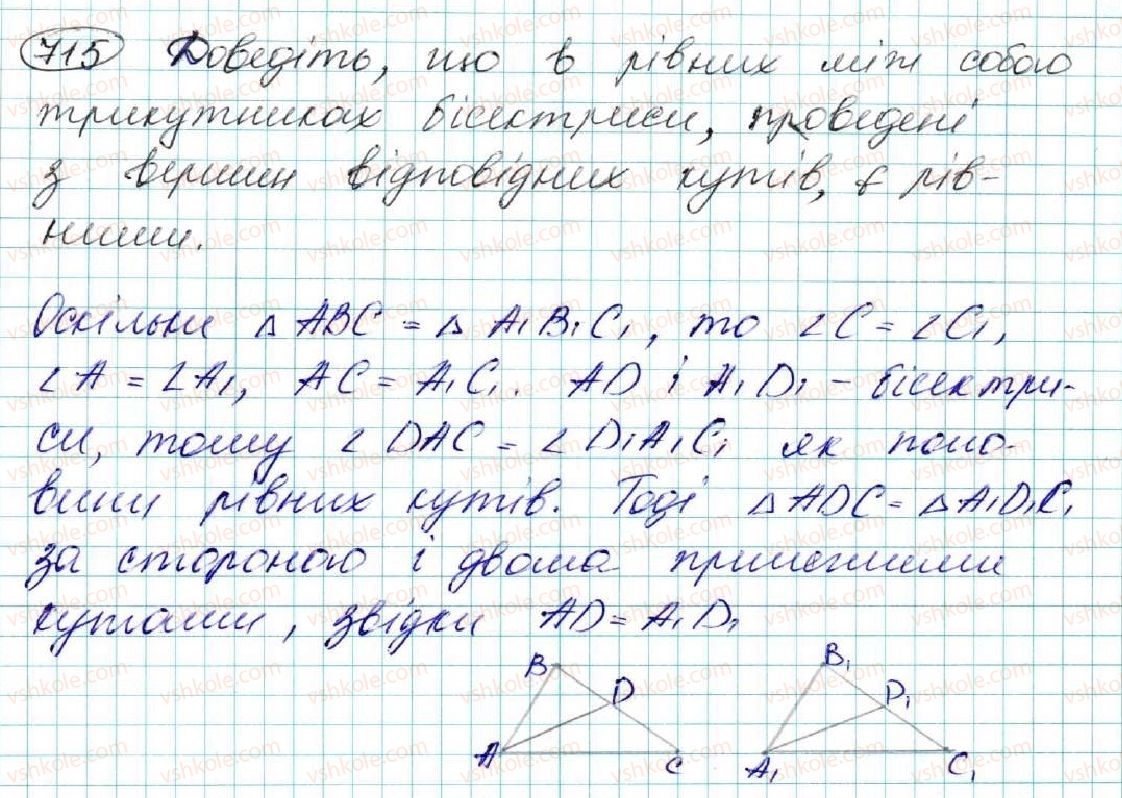 715 Доведіть, що в рівних між собою
трикутниках бісектриси, проведені
з вершин відповідних кутів, є рів-
ними.
Оскільки △ ABC = △ A₁B₁C₁, то ∠C = ∠C₁,
∠A = ∠A₁, AC = A₁C₁. AD і A₁D₁ – бісектри-
си, тому ∠DAC = ∠D₁A₁C₁ як поло-
вини рівних кутів. Тоді △ADC = △A₁D₁C₁
за стороною і двома прилеглими
кутами, звідки AD = A₁D₁
B D A C
B₁ D₁ A₁ C₁
vshkole.com